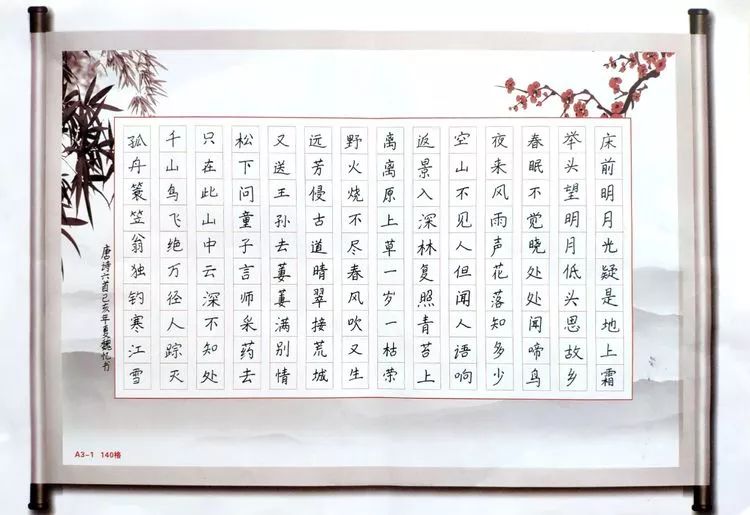 床前明月光疑是地上霜
举头望明月低头思故乡
春眠不觉晓处处闻啼鸟
夜来风雨声花落知多少
空山不见人但闻人语响
返景入深林复照青苔上
离离原上草一岁一枯荣
野火烧不尽春风吹又生
远芳侵古道晴翠接荒城
又送王孙去萋萋满别情
松下问童子言师采药去
只在此山中云深不知处
千山鸟飞绝万径人踪灭
孤舟蓑笠翁独钓寒江雪
唐诗六首己亥年夏魏忆书
A3-1 140格